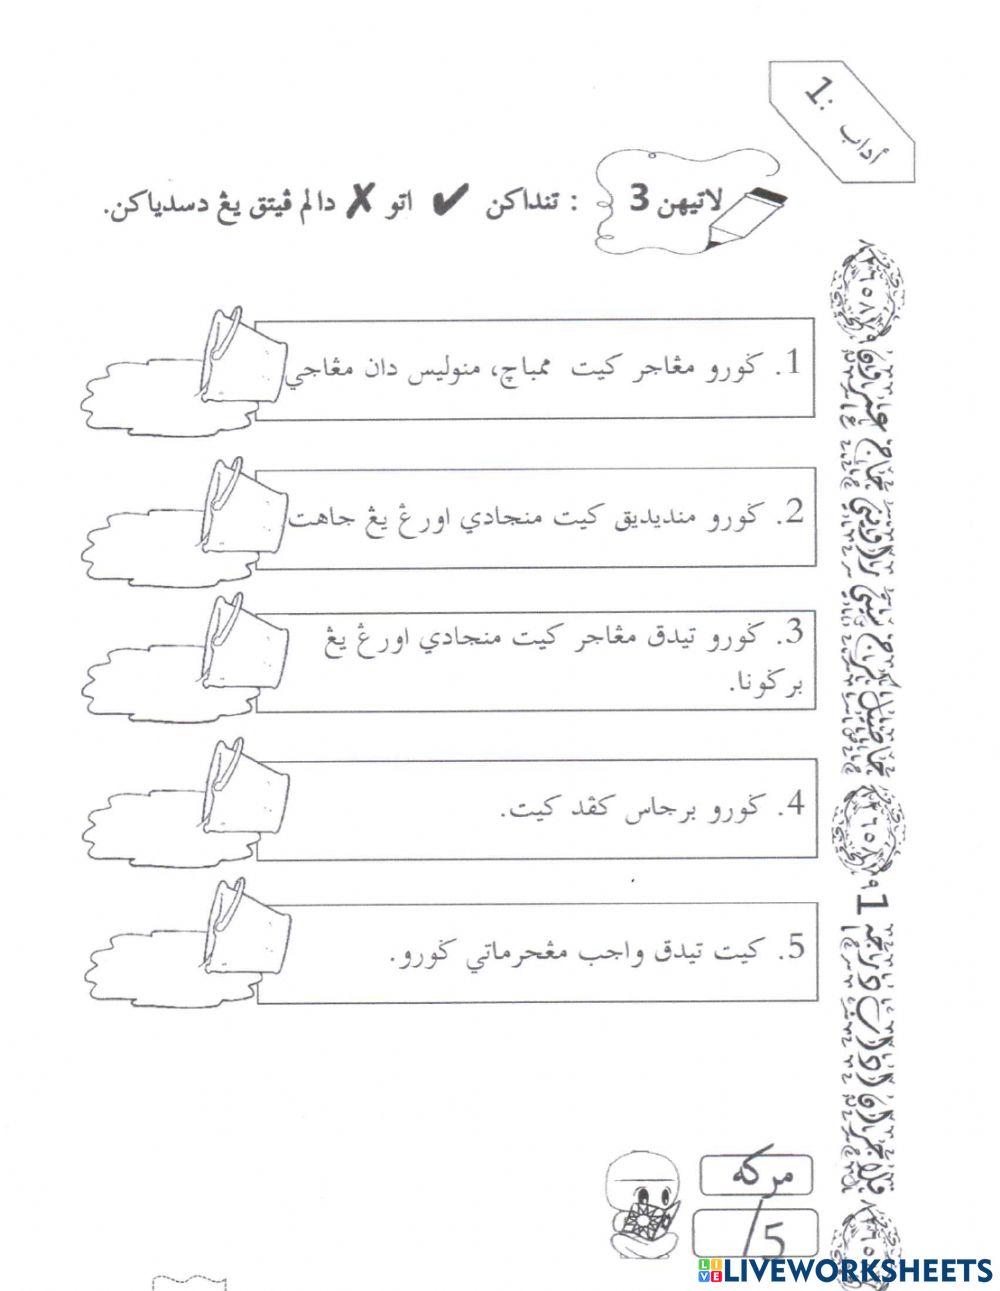 أداب :1
لاتيهن 3 : تنداكن ✔ اتو ✘ دالم ڤيتق يڠ دسدياكن.
1. ݢورو مڠاجر كيت ممباچ، منوليس دان مڠاجي
2. ݢورو منديديق كيت منجادي اورڠ يڠ جاهت
3. ݢورو تيدق مڠاجر كيت منجادي اورڠ يڠ
برݢونا.
4. ݢورو برجاس كڤد كيت.
5. كيت تيدق واجب مڠحرماتي ݢورو.
مركه
/5
LIVEWORKSHEETS